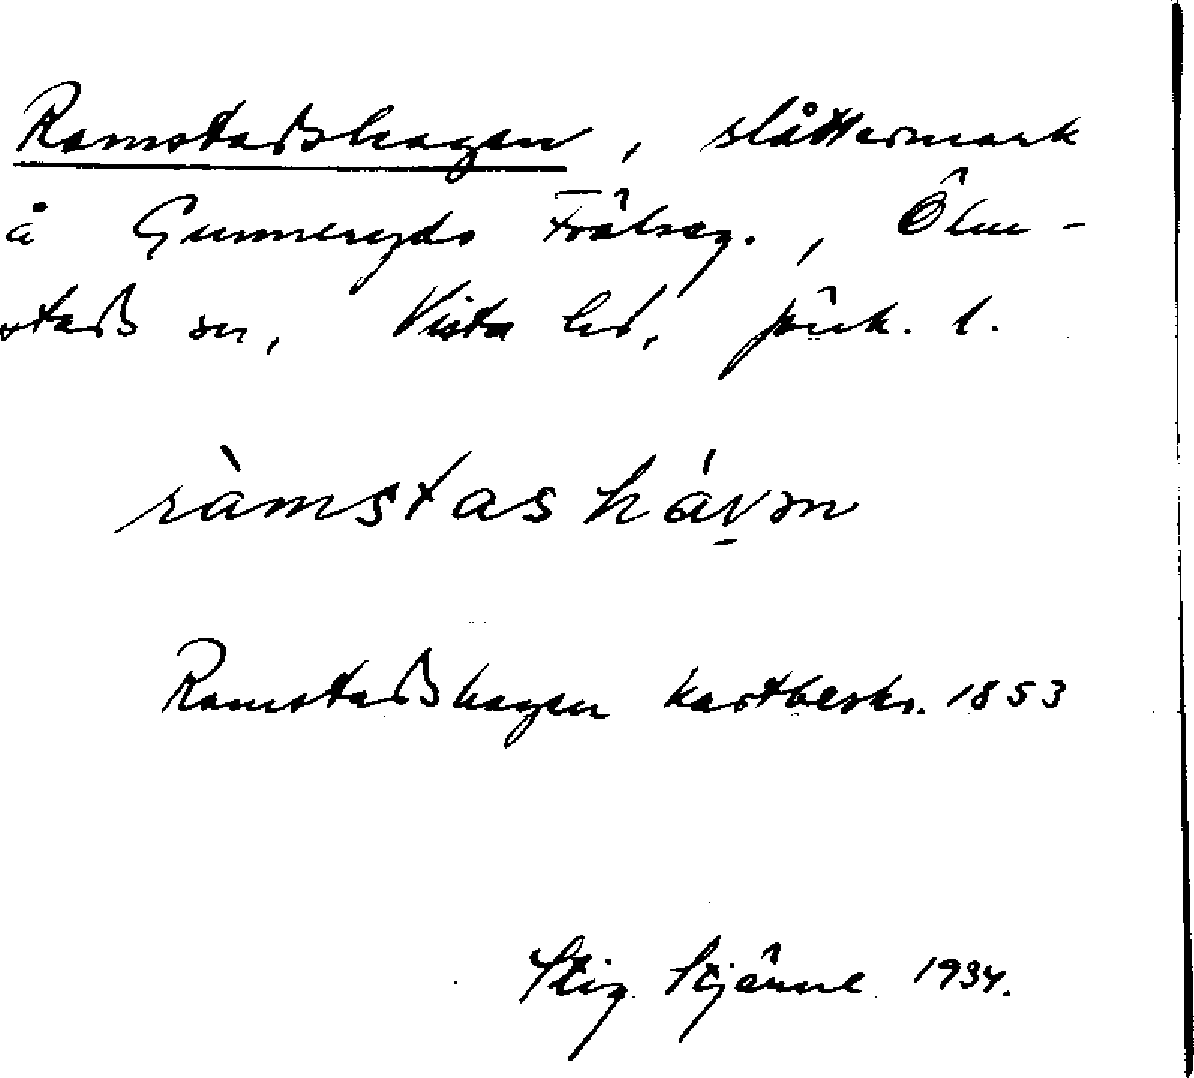 Ramstadshagen, slåttermark
å Gunneryds Frälseg., Ölm-
stads sn, Vista hd, Jönk. l.
ràmstas hávm
Ramstadshagen kartbeskr. 1853
Stig Stjärne 1934.